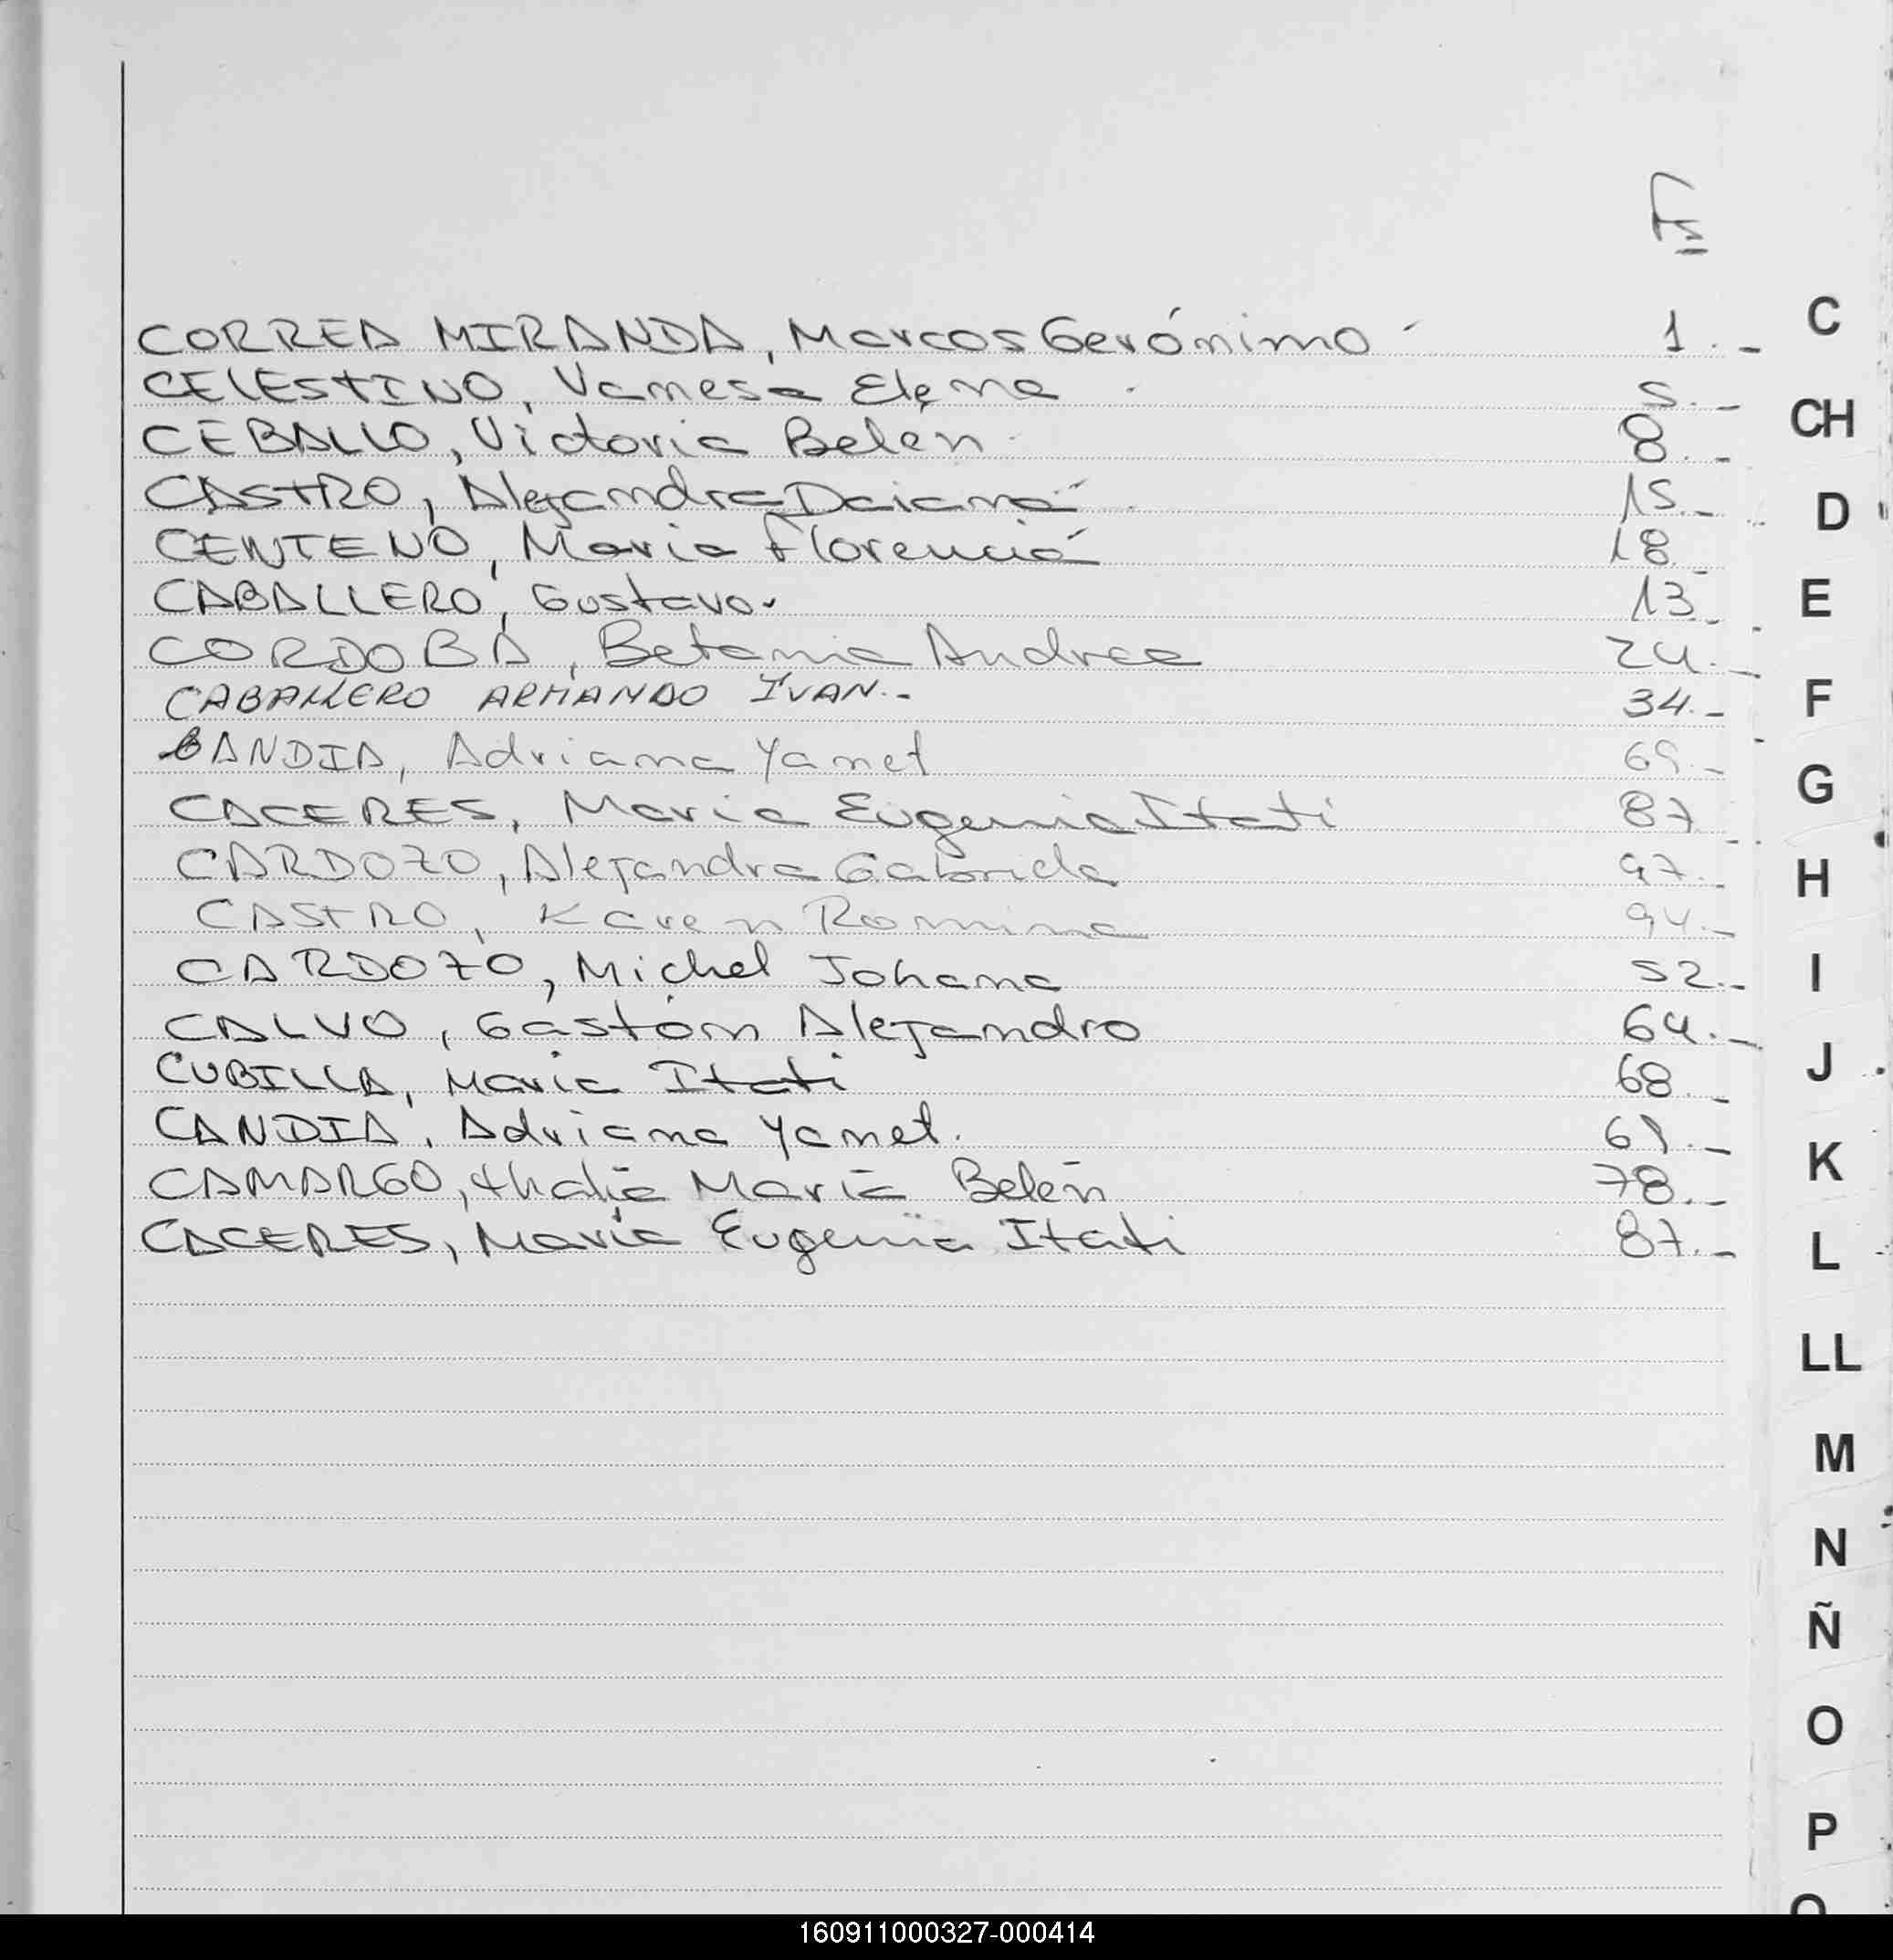 Fs
CORREA MIRANDA, Marcos Gerónimo 1.-
CELESTINO, Vanesa Elena 5.-
CEBALLO, Victoria Belen 8.-
CASTRO, Alejandra Daiana 15.-
CENTENO, Maria Florencia 18.-
CABALLERO, Gustavo. 13.-
CORDOBA, Betania Andrea 24.-
CABALLERO ARMANDO IVAN.- 34.-
BANDIA, Adriana Yanet 69.-
CACERES, Maria Eugenia Itati 87.-
CARDOZO, Alejandra Gabriela 97.-
CASTRO, Karen Romina 94.-
CARDOZO, Michel Johana 52.-
CALVO, Gastón Alejandro 64.-
CUBILLA, Maria Itati 68.-
CANDIA, Adriana Yanet. 69.-
CAMARGO, thalia María Belén 78.-
CACERES, María Eugenia Itati 87.-
C
CH
D
E
F
G
H
I
J
K
L
LL
M
N
Ñ
O
P
160911000327-000414